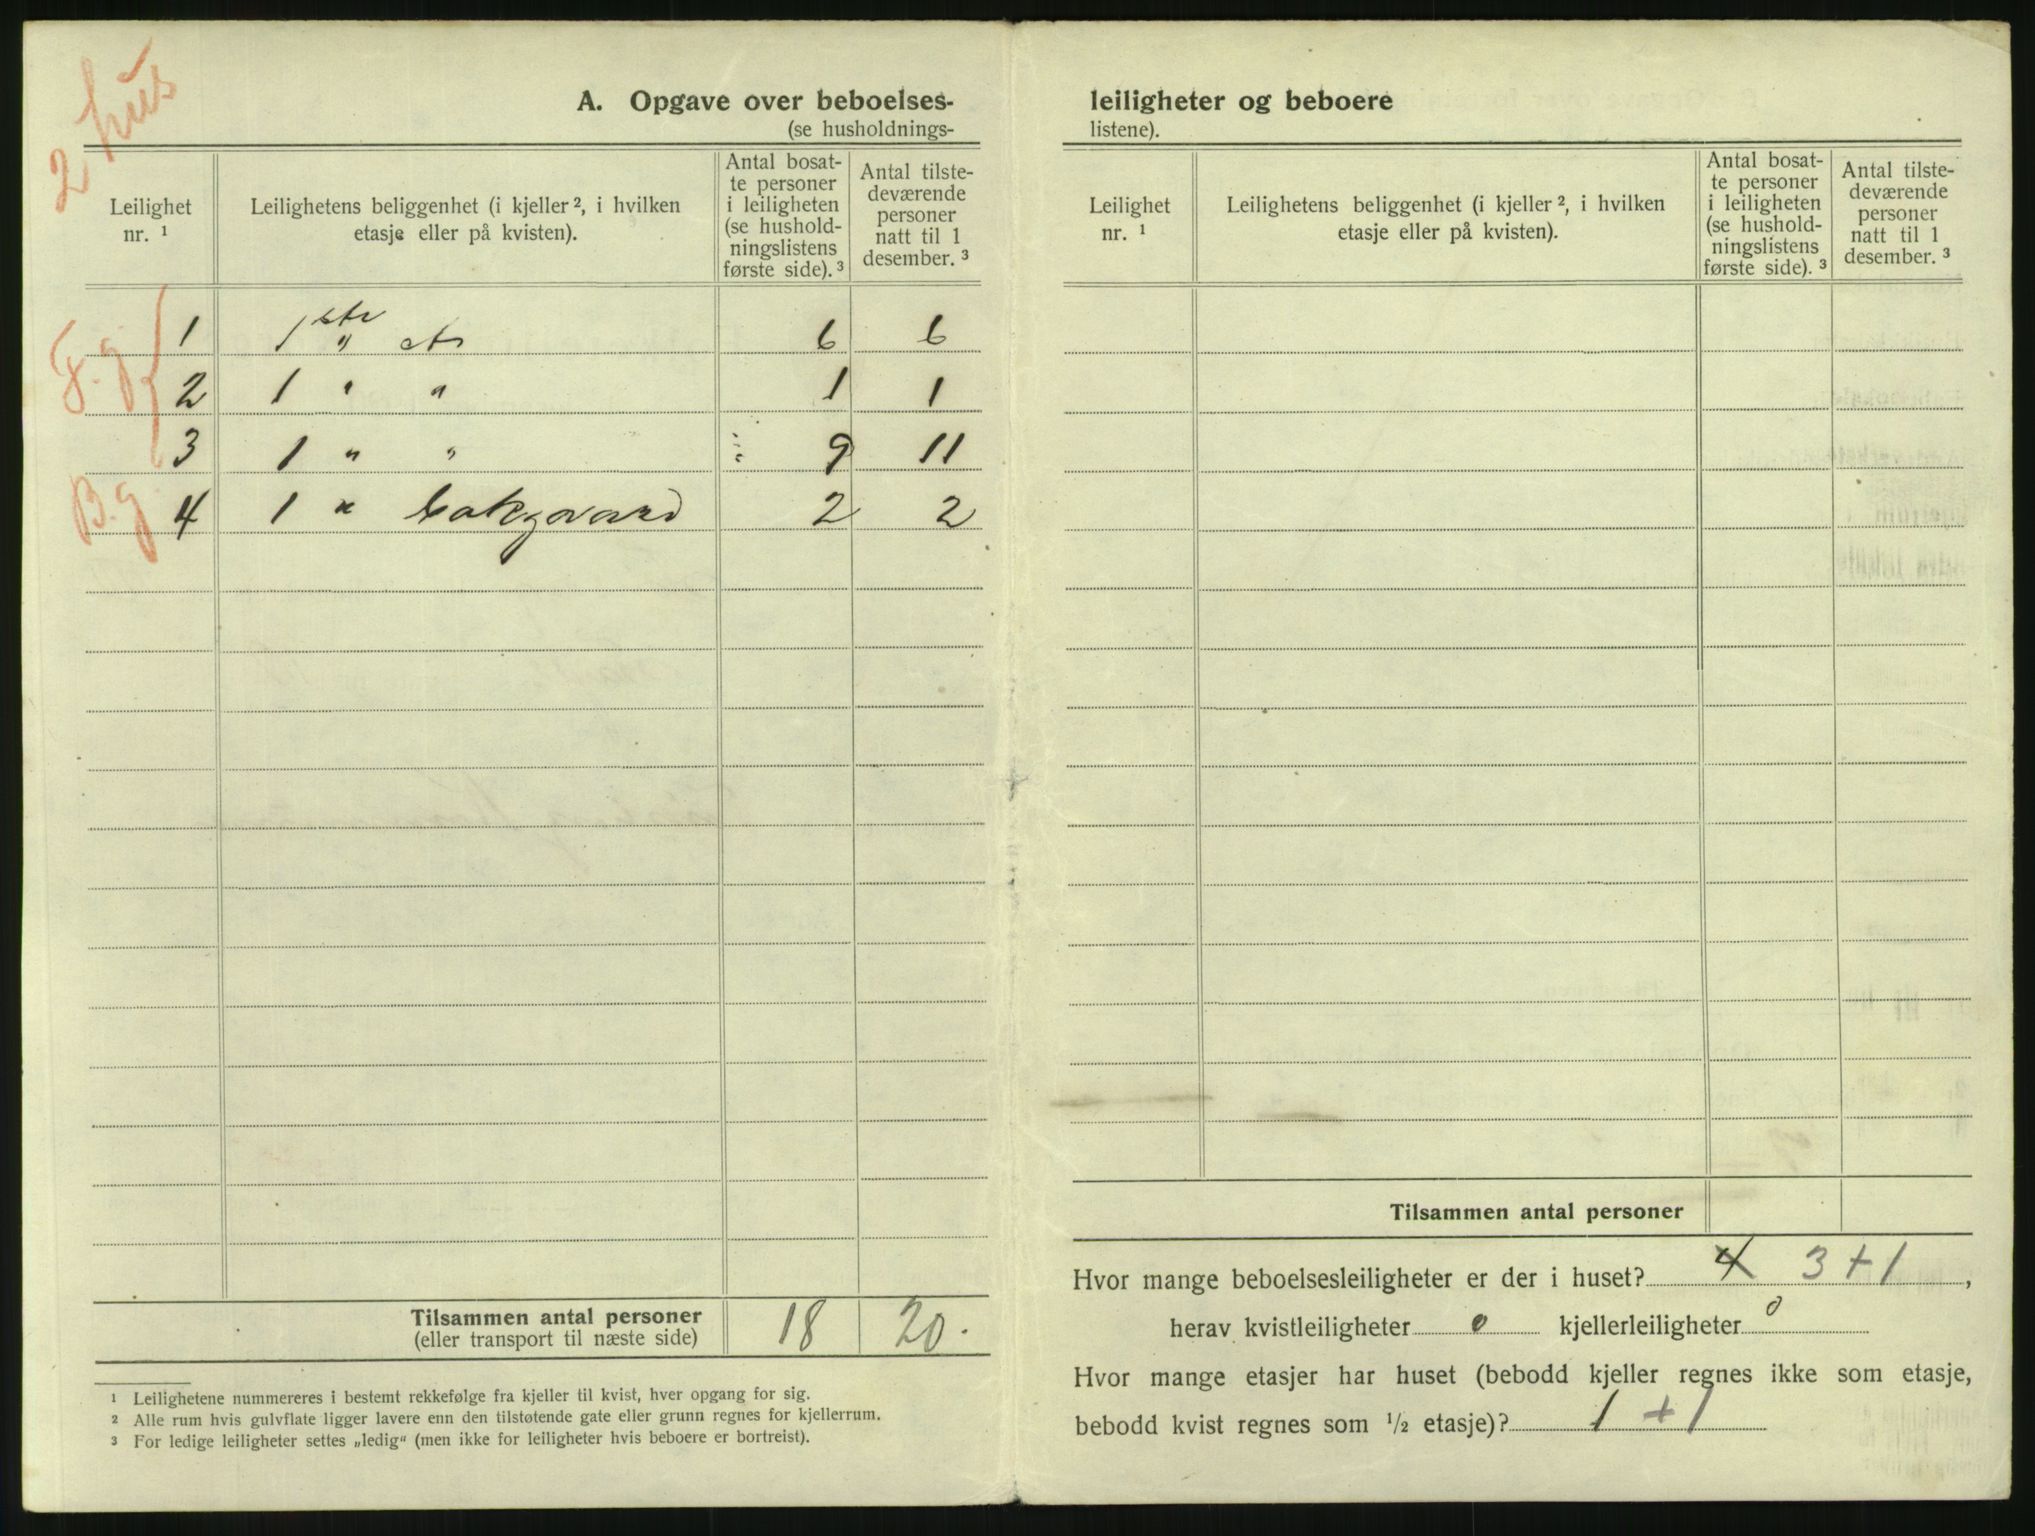 2 hus
A. Opgave over beboelses-
(se husholdnings-
Leilighet
nr. ¹
Leilighetens beliggenhet (i kjeller ², i hvilken
etasje eller på kvisten).
Antal bosat-
te personer
i leiligheten
(se hushold-
ningslistens
første side). ³
Antal tilste-
deværende
personer
natt til 1
desember. ³
F.g.
1 1ste " et 6 6
2 1 " " 1 1
3 1 " " 9 11
B.g.
4 1 " bakgaard 2 2
Tilsammen antal personer
(eller transport til næste side)
18 20.
¹ Leilighetene nummereres i bestemt rekkefølge fra kjeller til kvist, hver opgang for sig.
² Alle rum hvis gulvflate ligger lavere enn den tilstøtende gate eller grunn regnes for kjellerrum.
³ For ledige leiligheter settes „ledig“ (men ikke for leiligheter hvis beboere er bortreist).
leiligheter og beboere
listene).
Leilighet
nr. ¹
Leilighetens beliggenhet (i kjeller ², i hvilken
etasje eller på kvisten).
Antal bosat-
te personer
i leiligheten
(se hushold-
ningslistens
første side). ³
Antal tilste-
deværende
personer
natt til 1
desember. ³
Tilsammen antal personer
Hvor mange beboelsesleiligheter er der i huset? 4 3+1,
herav kvistleiligheter 0 kjellerleiligheter 0
Hvor mange etasjer har huset (bebodd kjeller regnes ikke som etasje,
bebodd kvist regnes som ½ etasje)? 1 + 1